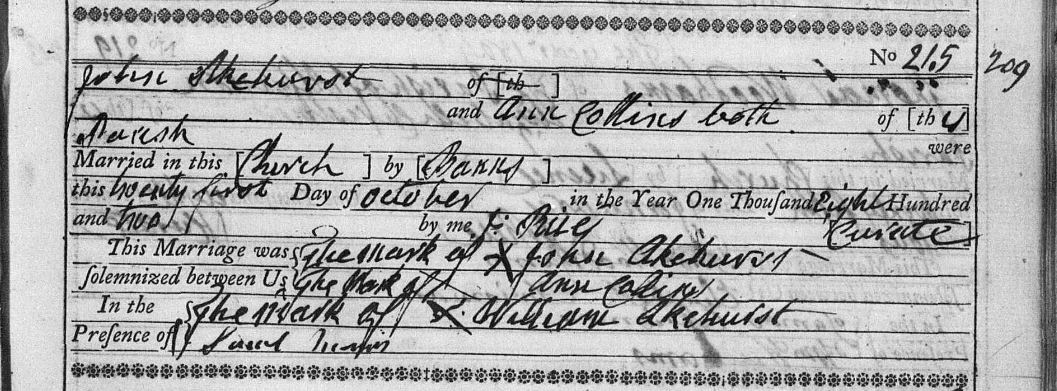 No 215
209
John Akehurst of [th ]
and Ann Collins both of [this]
Parish were
Married in this [Church ] by [Banns ]
this twenty first Day of october in the Year One Thouſand Eight Hundred
and two by me J: Curate
This Marriage was { The Mark of X John Akehurst
ſolemnized between Us { The Mark of Ann Collins
In the { The Mark of X William Akehurst
Preſence of {